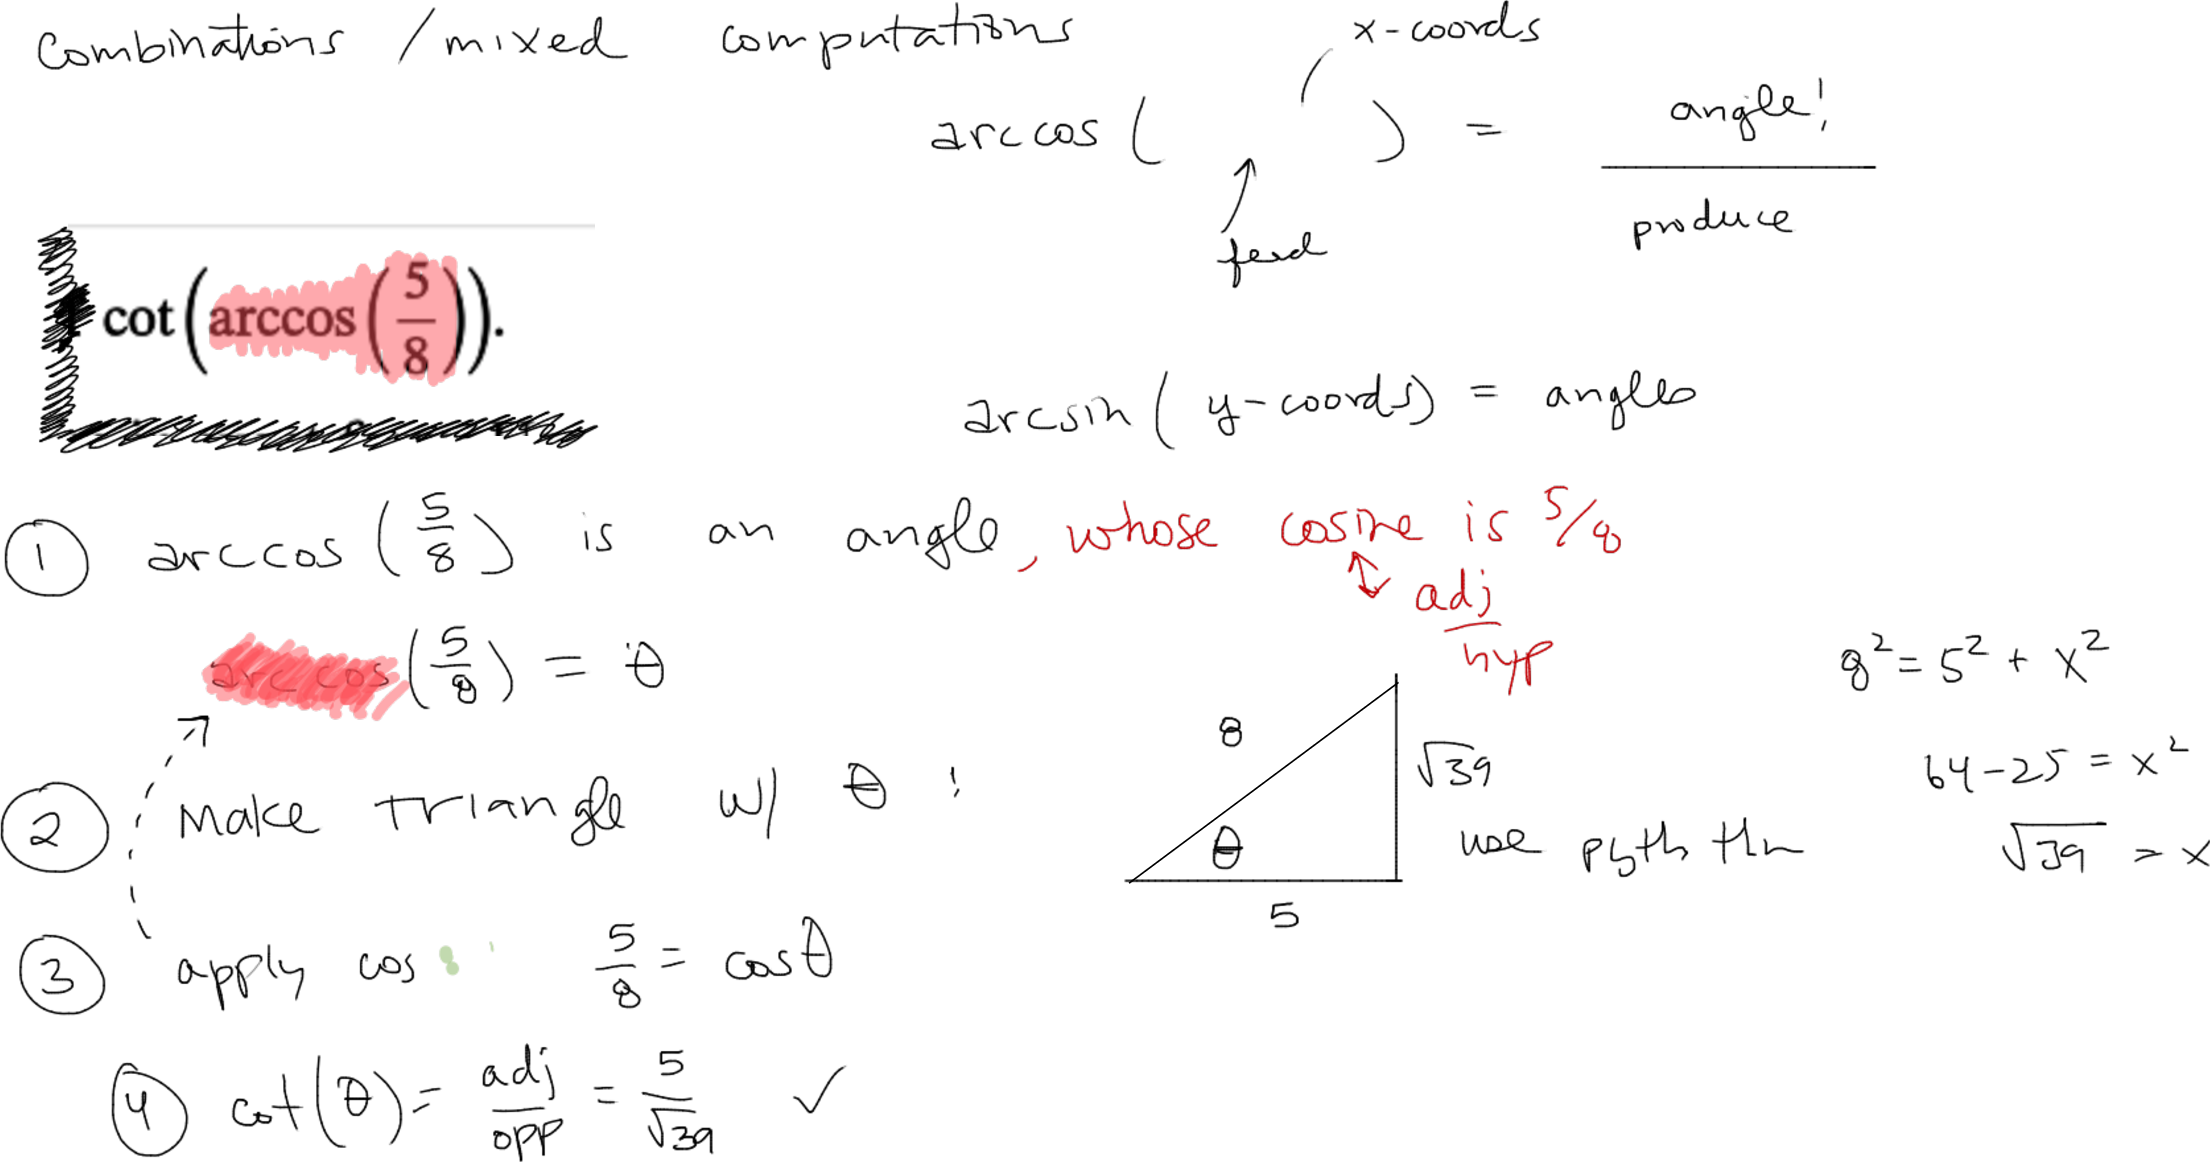 Combinations / mixed computations
x-coords
arccos ( ) = angle!
feed
produce
cot(arccos(5/8)).
arcsin ( y-coords) = angles
① arccos (5/8) is an angle, whose cosine is 5/8
adj/hyp
arccos (5/8) = θ
8² = 5² + x²
64-25 = x²
√39 = x
② Make triangle w/ θ !
8
√39
θ
5
use pyth thm
③ apply cos 5/8 = cosθ
④ cot(θ) = adj/opp = 5/√39 ✓